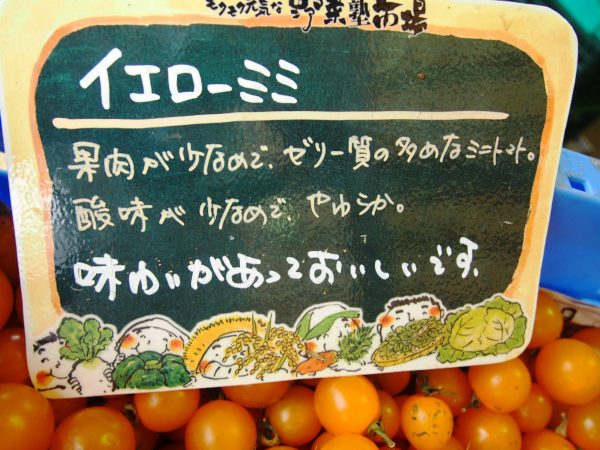 モクモク元気な野菜塾市場
イエローミミ
果肉が少なめで、ゼリー質の多めなミニトマト。
酸味が少なめで、やわらか。
味わいがあっておいしいです。